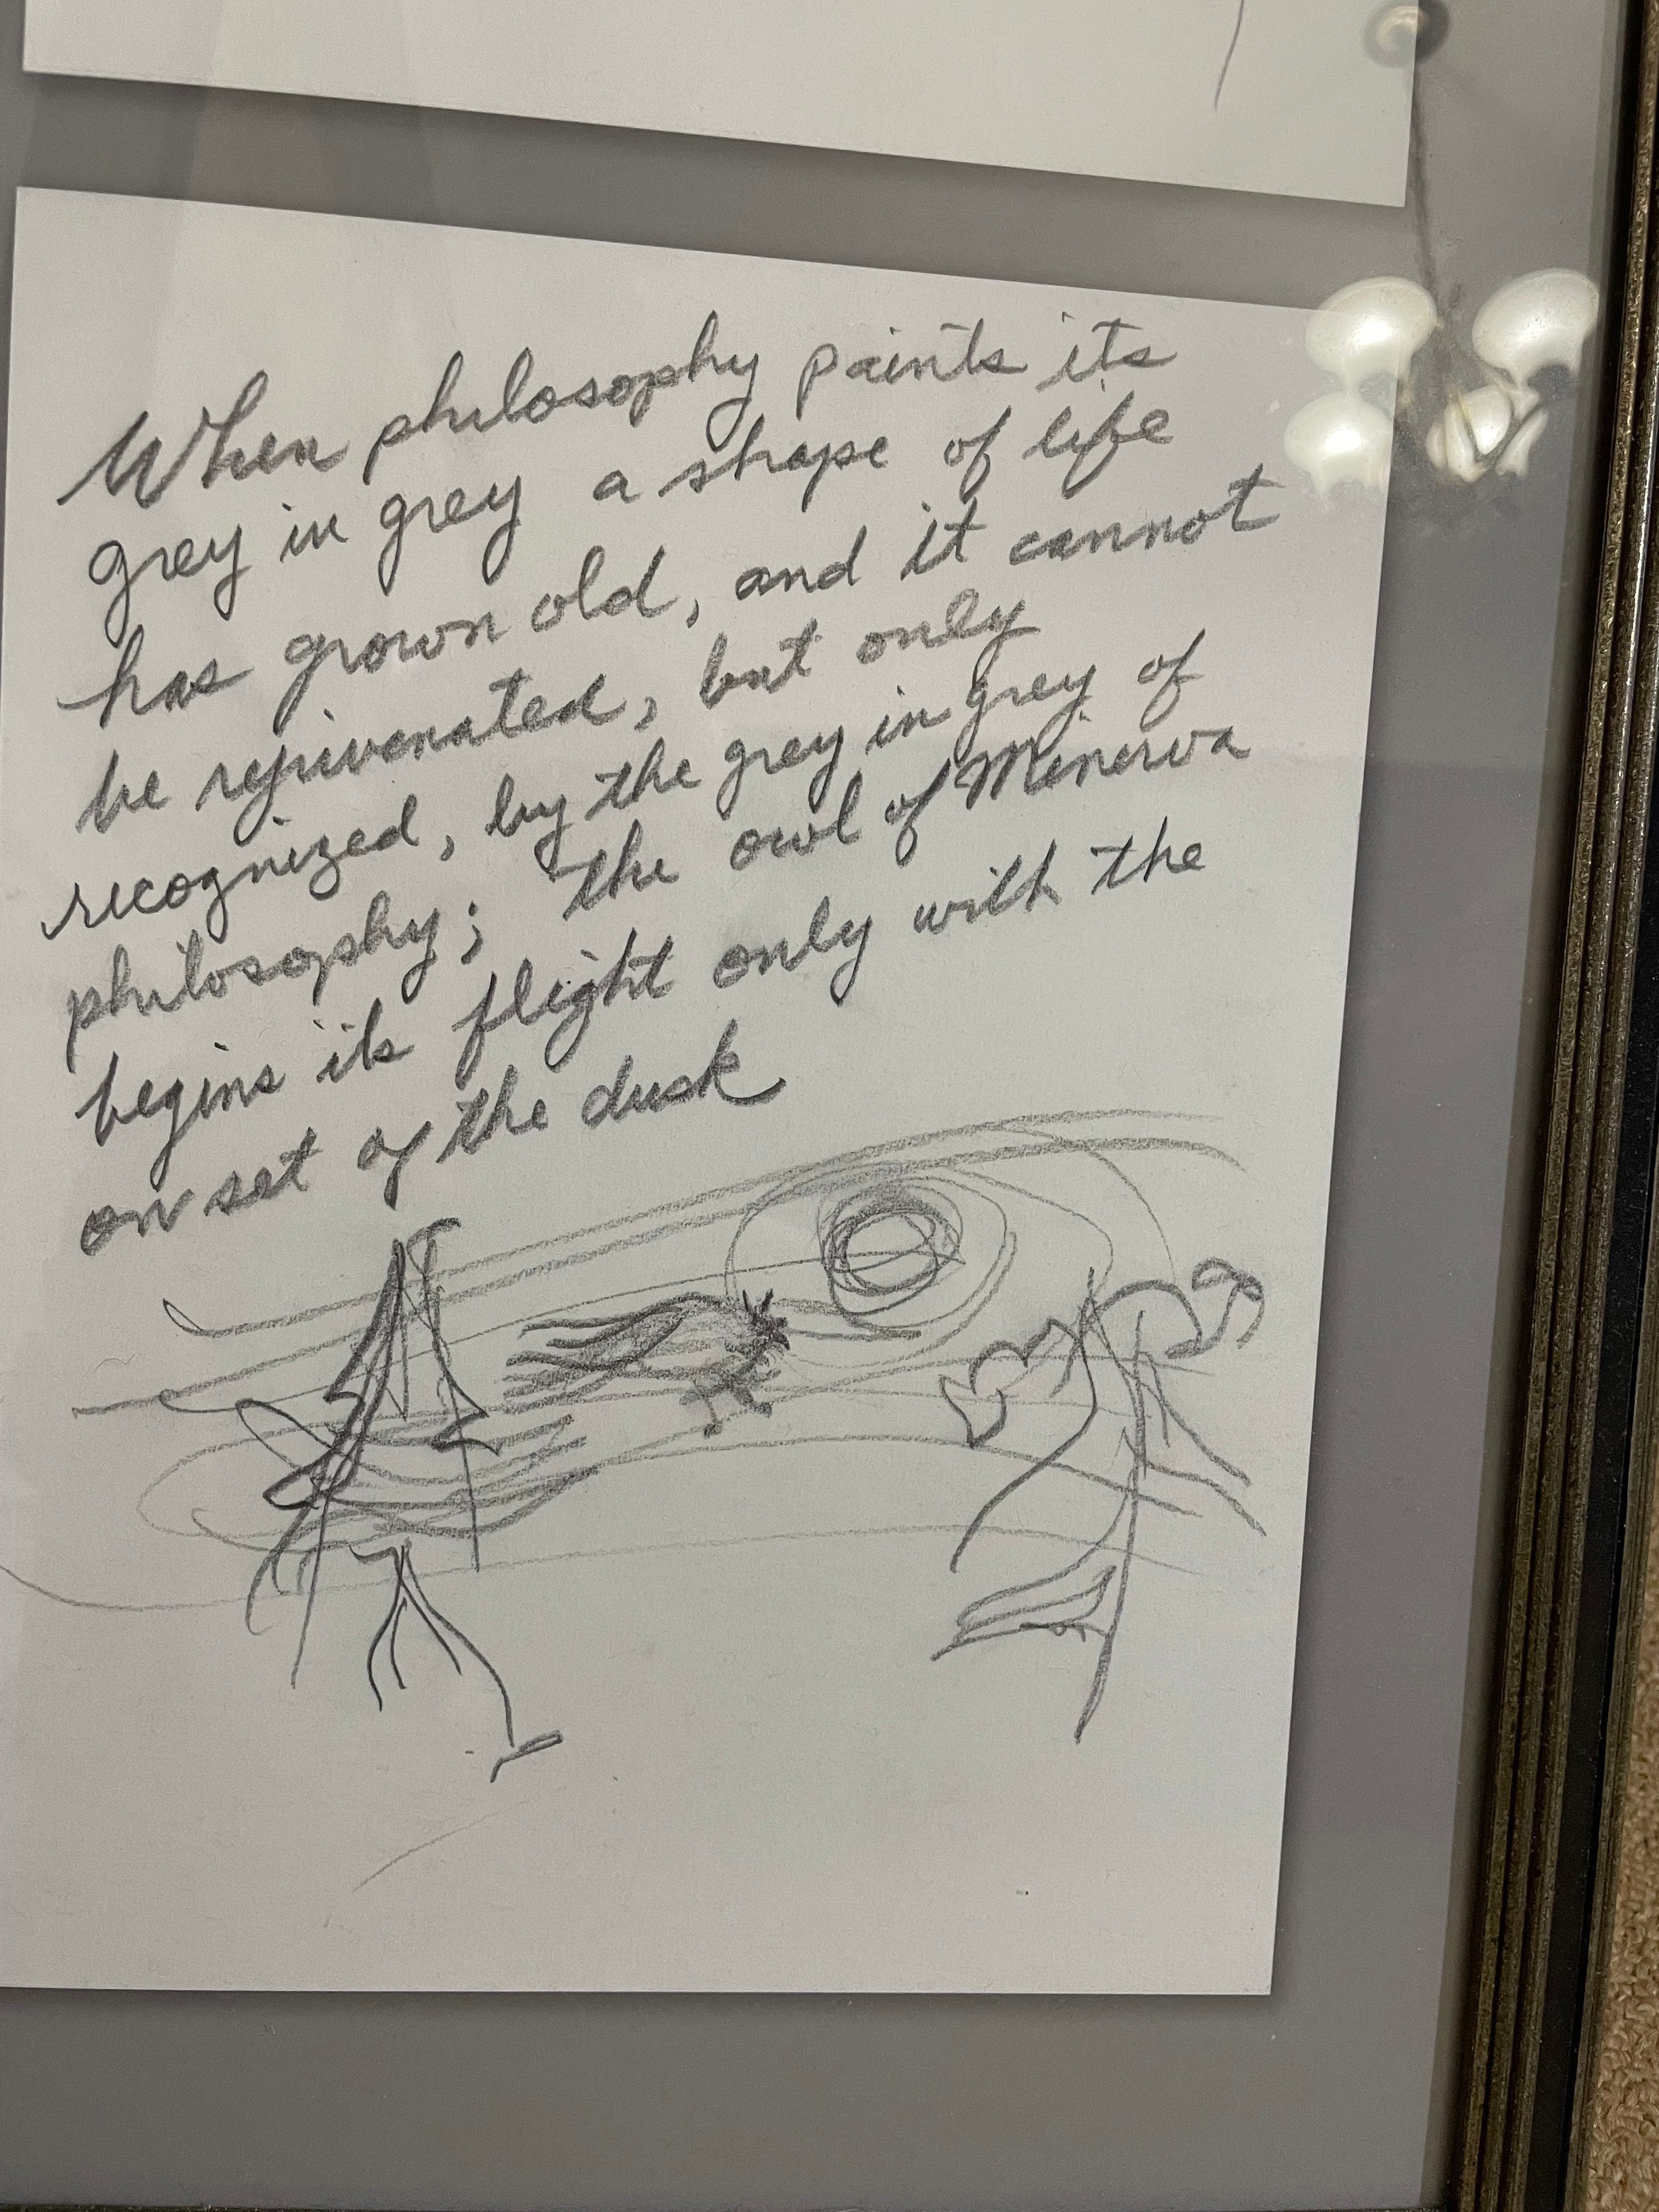 When philosophy paints its
grey in grey a shape of life
has grown old, and it cannot
be rejuvenated, but only
recognized, by the grey in grey of
philosophy; the owl of Minerva
begins its flight only with the
onset of the dusk